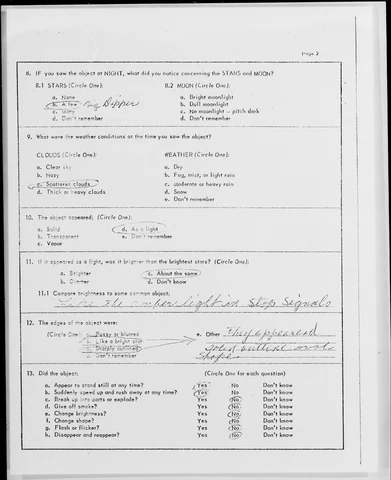 Page 2
8. IF you saw the object at NIGHT, what did you notice concerning the STARS and MOON?
8.1 STARS (Circle One): 8.2 MOON (Circle One):
a. None a. Bright moonlight
b. A few Big Dipper b. Dull moonlight
c. Many c. No moonlight – pitch dark
d. Don't remember d. Don't remember
9. What were the weather conditions at the time you saw the object?
CLOUDS (Circle One): WEATHER (Circle One):
a. Clear sky a. Dry
b. Hazy b. Fog, mist, or light rain
c. Scattered clouds c. Moderate or heavy rain
d. Thick or heavy clouds d. Snow
e. Don't remember
10. The object appeared: (Circle One):
a. Solid d. As a light
b. Transparent e. Don't remember
c. Vapor
11. If it appeared as a light, was it brighter than the brightest stars? (Circle One):
a. Brighter c. About the same
b. Dimmer d. Don't know
11.1 Compare brightness to some common object:
Like the amber light in Stop Signals
12. The edges of the object were:
(Circle One): a. Fuzzy or blurred e. Other They appeared
b. Like a bright star
c. Sharply outlined
d. Don't remember
shape
13. Did the object: (Circle One for each question)
a. Appear to stand still at any time? Yes No Don't know
b. Suddenly speed up and rush away at any time? Yes No Don't know
c. Break up into parts or explode? Yes No Don't know
d. Give off smoke? Yes No Don't know
e. Change brightness? Yes No Don't know
f. Change shape? Yes No Don't know
g. Flash or flicker? Yes No Don't know
h. Disappear and reappear? Yes No Don't know